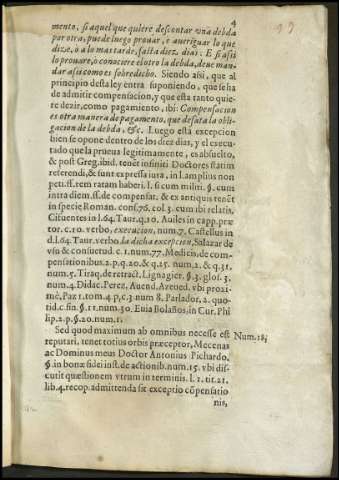 4
mento, si aquel que quiere descontar vna debda
por otra, puede luego prouar, e aueriguar lo que
dize, o a lo mas tarde, fasta diez dias. E si assi
lo prouare, o conociere el otro la debda, deue man-
dar assi como es sobredicho. Siendo assi, que al
principio desta ley entra suponiendo, que se ha
de admitir compensacion, y que esta tanto quie-
re dezir, como pagamiento, ibi: Compensacion
es otra manera de pagamento, que desata la obli-
gacion de la debda, &c. Luego esta excepcion
bien se opone dentro de los diez dias, y el execu-
tado que la prueua legitimamente, es absuelto,
& post Greg. ibid. tenẽt infiniti Doctores statim
referendi, & sunt expressa iura, in l. amplius non
peti. ff. rem ratam haberi. l. si cum milit. §. cum
intra diem. ff. de compensat. & ex antiquis tenẽt
in specie Román. cons. 76. col. 3. cum ibi relatis,
Cifuentes in l. 64. Taur. q. 10. Auiles in capp. præ-
tor. c. 10. verbo, execucion, num. 7. Castellus in
d. l. 64. Taur. verbo la dicha excepcion, Salazar de
vsu & consuetud. c. 1. num. 77. Medicis, de com-
pensationibus. 2. p. q. 20. & q. 25. num. 2. & q. 31.
num. 5. Tiraq. de retract. Lignagier. §. 3. glos. 3.
num. 4. Didac. Perez, Auend. Azeued. vbi proxi-
mè, Paz 1. tom. 4 p. c. 3 num 8. Parlador. 2. quo-
tid. c. fin. §. 11. num. 30. Euia Bolaños, in Cur. Phi
lip. 2. p. §. 20. num. 1.
Sed quod maximum ab omnibus necesse est Num. 18.
reputari, tenet totius orbis præceptor, Mecenas
ac Dominus meus Doctor Antonius Pichardo.
§. in bonæ fidei inst. de actionib. num. 15. vbi dis-
cutit quæstionem vtrum in terminis. l. 1. tit. 21.
lib. 4. recop. admittenda sit exceptio cõpensatio
nis,